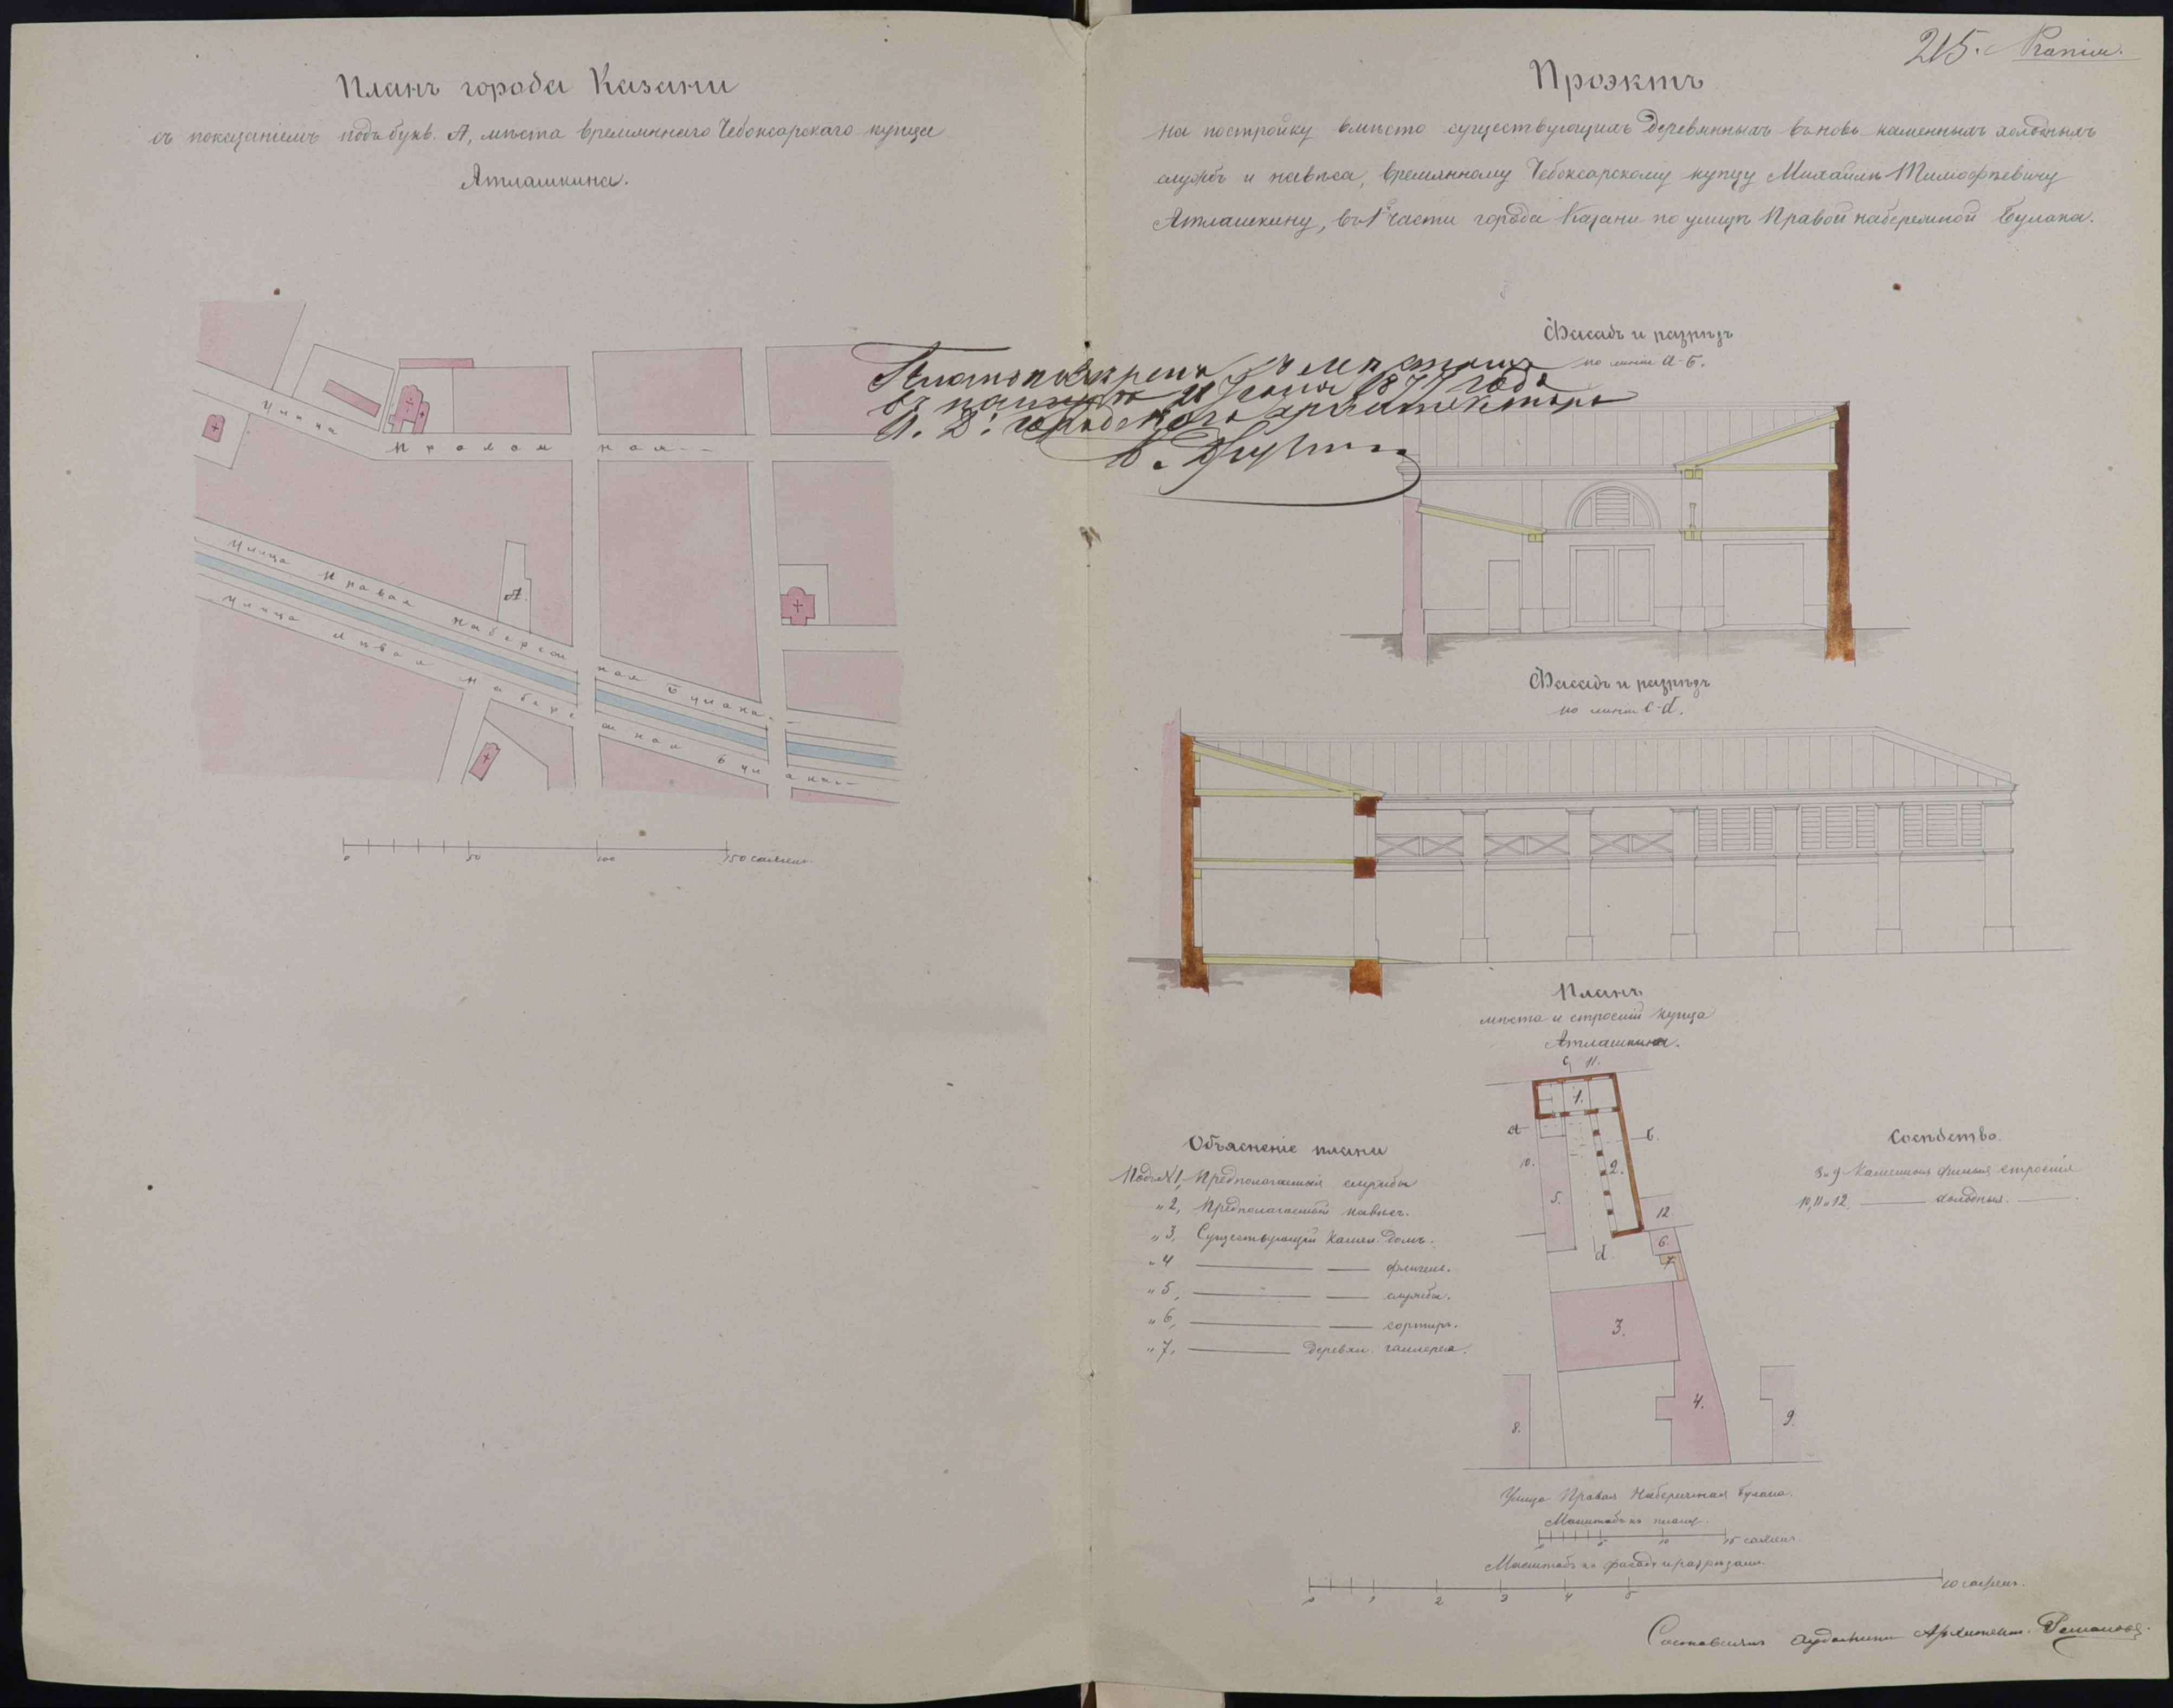 Планъ города Казани
съ показаніемъ подъ букв. А, мѣста временнаго Чебоксарскаго купца
Атлашкина.
Улица
Проломная
А.
Улица Правая Набережная Булака.
Улица Лѣвая Набережная Булака
0 50 100 150 сажень
215.
Проэктъ
на постройку вмѣсто существующихъ деревянныхъ вновь каменныхъ холодныхъ
службъ и навѣса, временному Чебоксарскому купцу Михаилу Тимофѣевичу
Атлашкину, въ 1й части города Казани по улицѣ Правой набережной Булака.
Планъ повѣренъ съ мѣстомъ
въ натурѣ 11 Іюня 1877 года
И. Д. городского архитектора
Фасадъ и разрѣзъ
по линіи а-б.
Фасадъ и разрѣзъ
по линіи с-d.
Планъ
мѣста и строеній купца
Атлашкина.
с 11.
1.
а
б.
10.
2.
5.
12
d
6.
7.
3.
4.
8.
9.
Объясненіе плана
Подъ № 1, Предполагаемыя службы
" 2, Предполагаемый навѣсъ.
" 3, Существующій камен. домъ.
" 4 флигель.
" 5, службы.
" 6, сортиръ.
" 7, деревян. галлерея.
Сосѣдство.
8 и 9 Каменныя жилыя строенія
10, 11 и 12, холодныя.
Улица Правая Набережная Булака.
Масштабъ къ плану.
0 5 10 15 сажень
Масштабъ къ фасаду и разрѣзамъ.
0 1 2 3 4 5 10 сажень.
Составилъ Архитект.